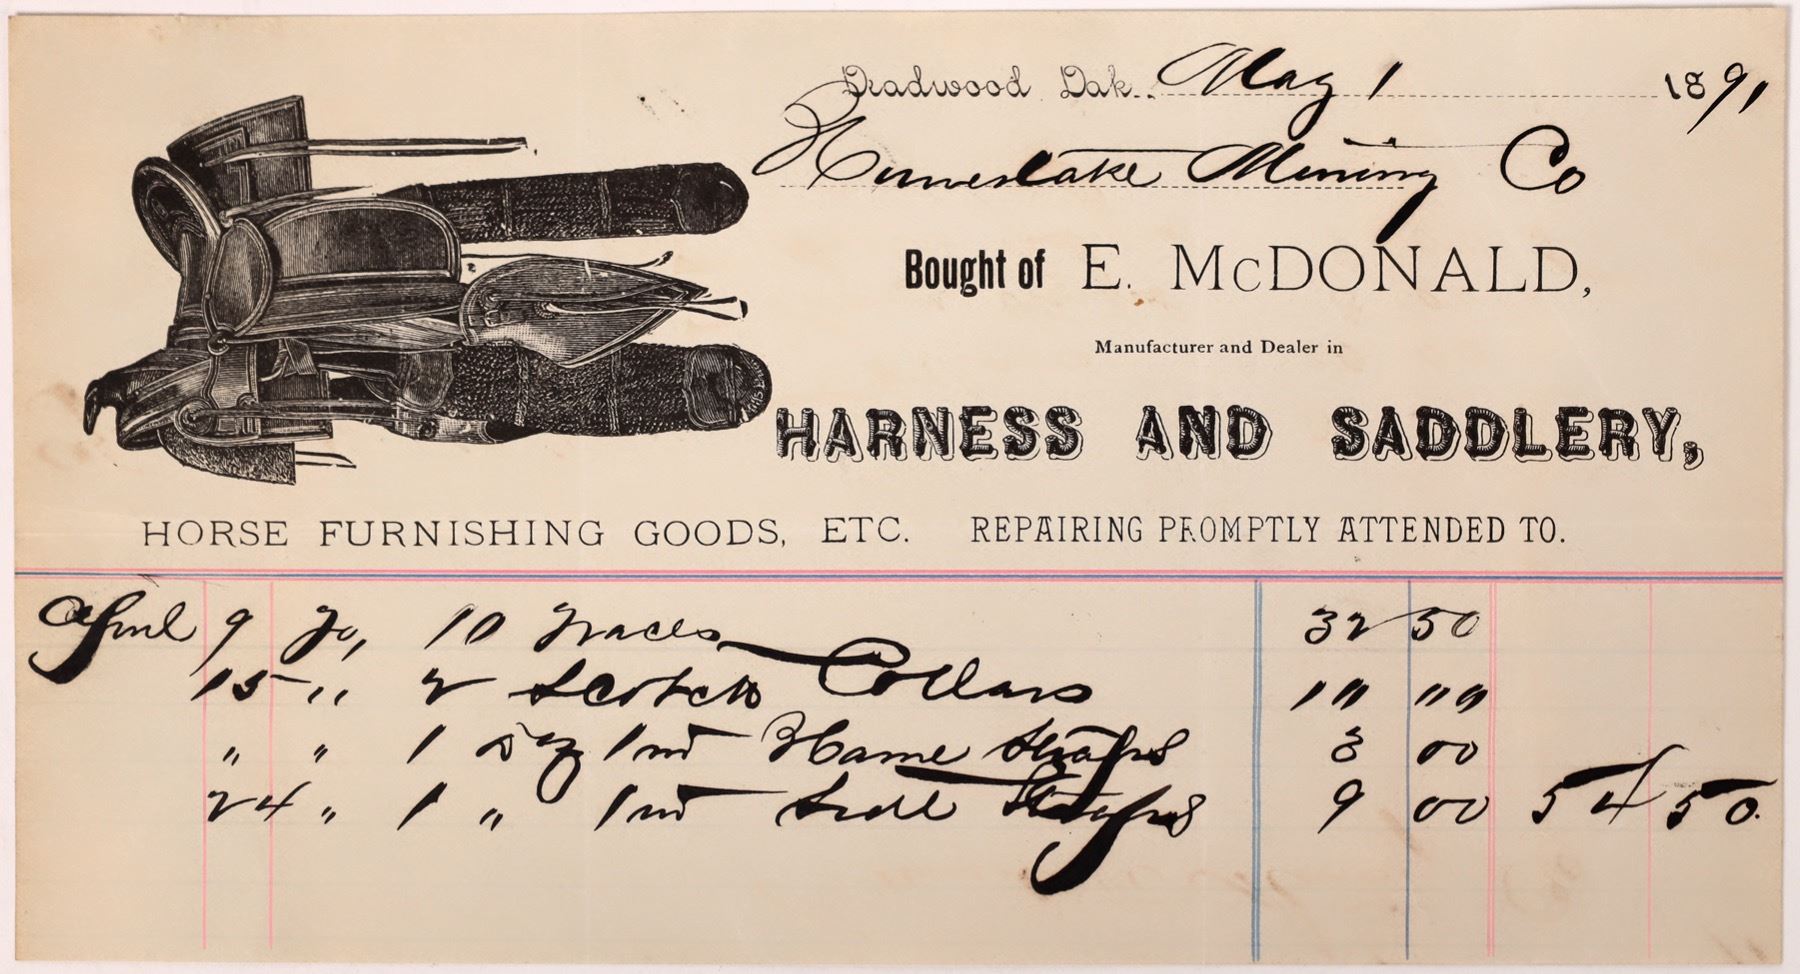 Deadwood Dak. May 1 1891
Homestake Mining Co
Bought of E. McDONALD,
Manufacturer and Dealer in
HARNESS AND SADDLERY,
HORSE FURNISHING GOODS, ETC. REPAIRING PROMPTLY ATTENDED TO.
April 9 To, 10 Traces 32 50
15 " 2 Scotch Collars 10 00
" " 1 Dz 1 in Hame Straps 3 00
24 " 1 " 1 in Straps 9 00 54 50